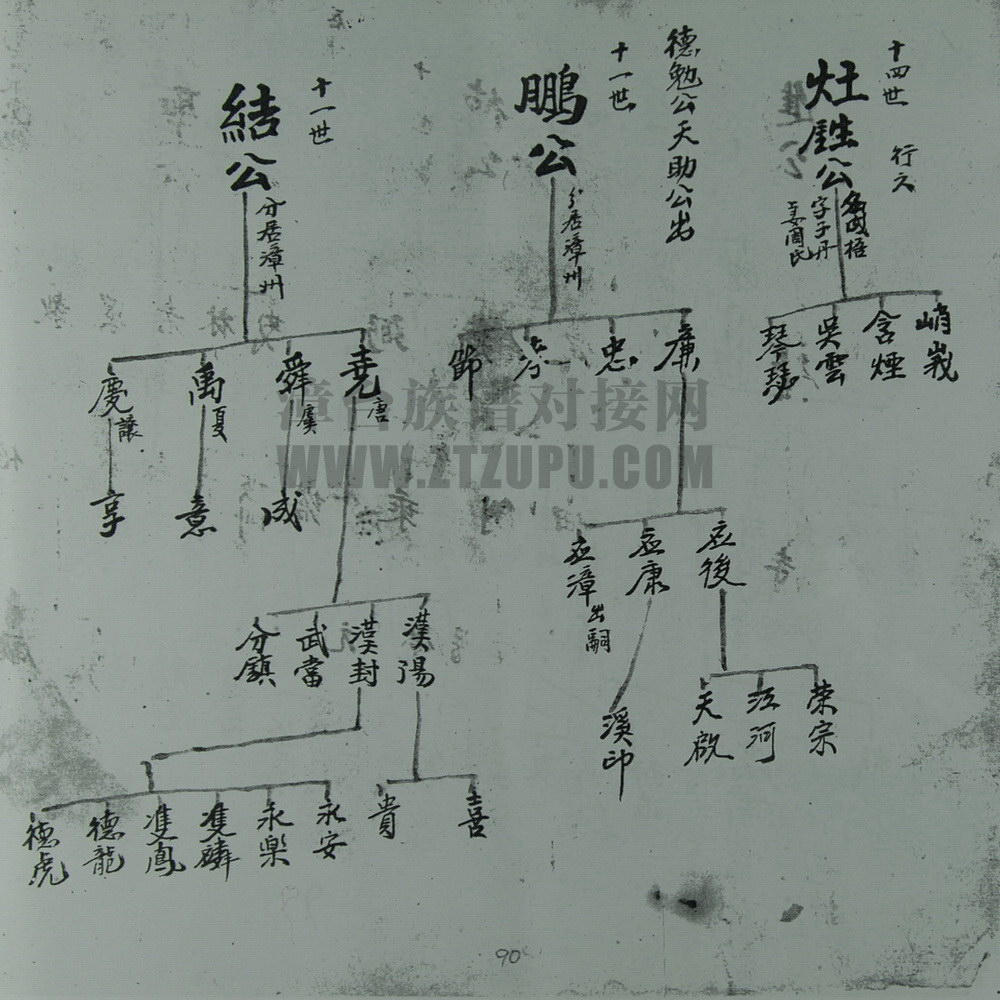 十四世
行六
灶鉎公
字子丹
峭峩
含煙
吳雲
琴瑟
德勉公天助公出
十一世
鵬公
分居漳州
廉
忠
孝
節
应後
应康
应漳出嗣
荣宗
江河
天啟
溪印
十一世
結公
分居漳州
堯唐
舜虞
禹夏
慶讓
成
意
享
漢陽
漢封
武當
分鎮
喜
貴
永安
永樂
隻麟
隻鳳
德龍
德虎
漳台族谱对接网
WWW.ZTZUPU.COM
90